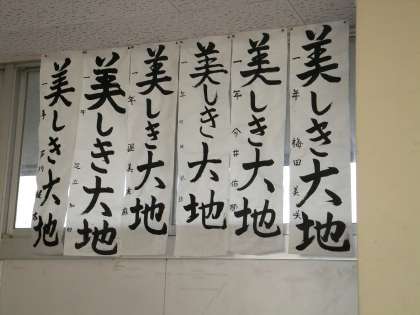 美しき大地
一年 梅田 美咲
美しき大地
一年 今井 佑
美しき大地
一年
美しき大地
一年
美しき大地
一年 足立
美しき大地
一年